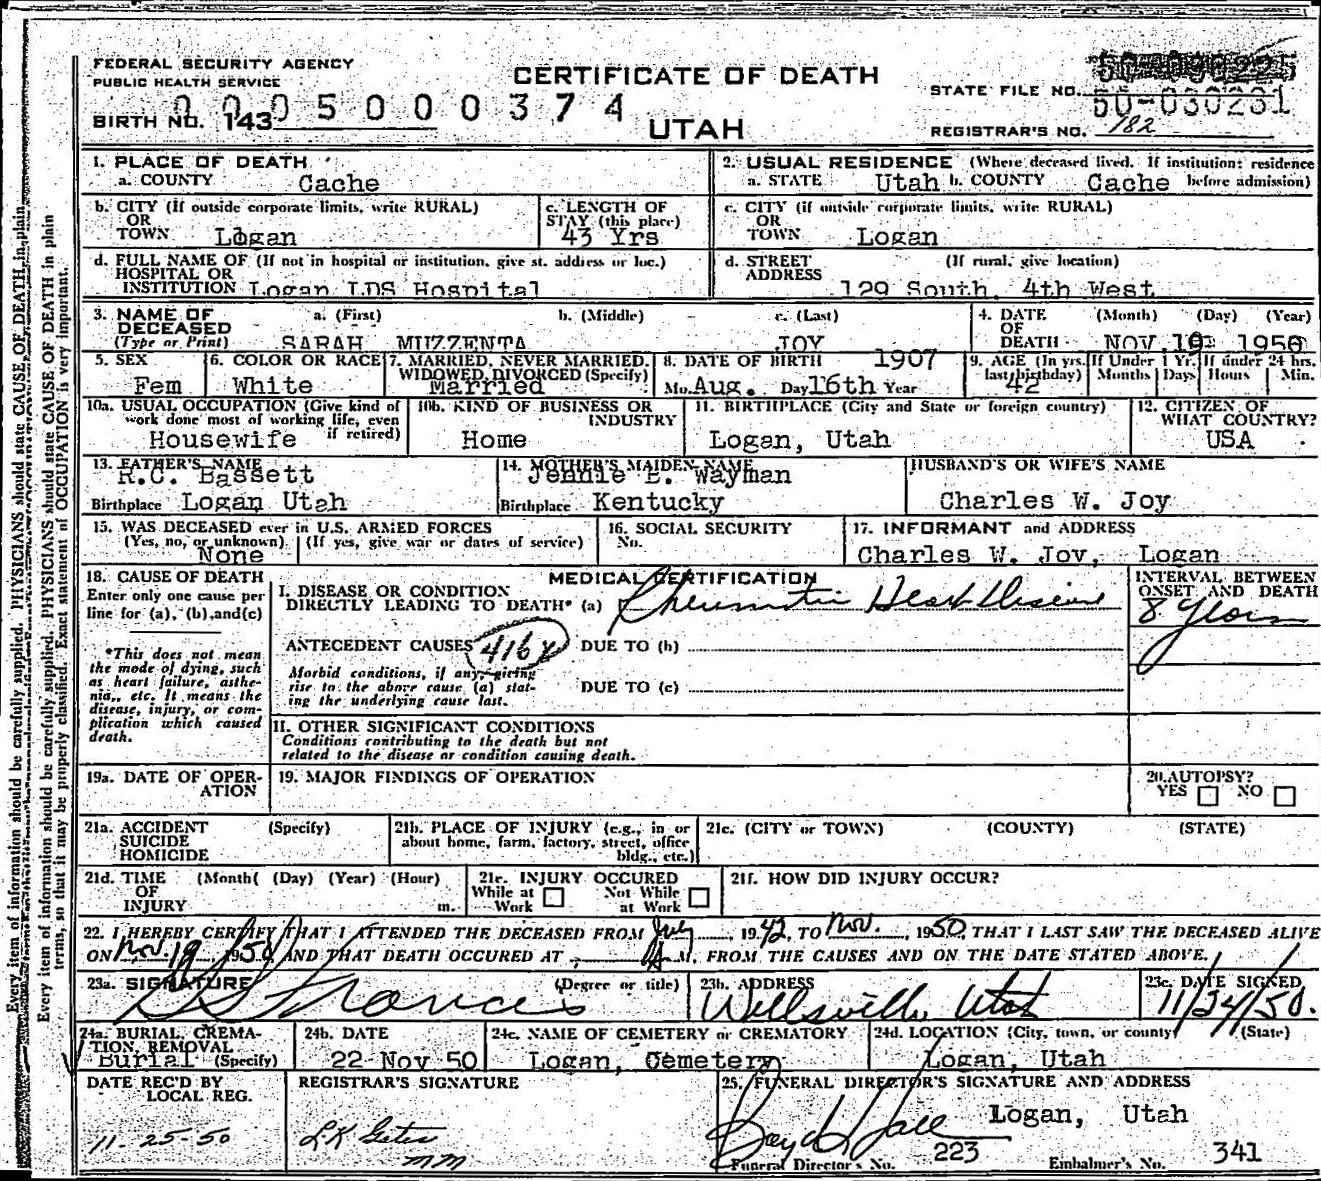 FEDERAL SECURITY AGENCY
PUBLIC HEALTH SERVICE
CERTIFICATE OF DEATH
UTAH
0005000374
BIRTH NO. 143
STATE FILE NO. 50-030231
REGISTRAR'S NO. 182
1. PLACE OF DEATH
a. COUNTY Cache
2. USUAL RESIDENCE (Where deceased lived. If institution: residence
a. STATE Utah b. COUNTY Cache before admission)
b. CITY (If outside corporate limits, write RURAL)
OR
TOWN Logan
c. LENGTH OF
STAY (this place)
43 Yrs
c. CITY (if outside corporate limits, write RURAL)
OR
TOWN Logan
d. FULL NAME OF (If not in hospital or institution, give st. address or loc.)
HOSPITAL OR
INSTITUTION Logan LDS Hospital
d. STREET (If rural, give location)
ADDRESS
129 South, 4th West
3. NAME OF a. (First) b. (Middle) c. (Last)
DECEASED
(Type or Print) SARAH MUZZENTA JOY
4. DATE (Month) (Day) (Year)
OF
DEATH NOV 19 1950
5. SEX
Fem
6. COLOR OR RACE
White
7. MARRIED, NEVER MARRIED,
WIDOWED, DIVORCED (Specify)
Married
8. DATE OF BIRTH 1907
Mo. Aug. Day 16th Year
9. AGE (In yrs. last birthday) 42
If Under 1 Yr. Months Days
If under 24 hrs. Hours Min.
10a. USUAL OCCUPATION (Give kind of
work done most of working life, even
if retired)
Housewife
10b. KIND OF BUSINESS OR
INDUSTRY
Home
11. BIRTHPLACE (City and State or foreign country)
Logan, Utah
12. CITIZEN OF
WHAT COUNTRY?
USA
13. FATHER'S NAME
R.C. Bassett
Birthplace Logan Utah
14. MOTHER'S MAIDEN NAME
Jennie E. Wayman
Birthplace Kentucky
HUSBAND'S OR WIFE'S NAME
Charles W. Joy
15. WAS DECEASED ever in U.S. ARMED FORCES
(Yes, no, or unknown) (If yes, give war or dates of service)
None
16. SOCIAL SECURITY
No.
17. INFORMANT and ADDRESS
Charles W. Joy, Logan
18. CAUSE OF DEATH
Enter only one cause per
line for (a), (b), and (c)
*This does not mean
the mode of dying, such
as heart failure, asthe-
nia,, etc. It means the
disease, injury, or com-
plication which caused
death.
MEDICAL CERTIFICATION
I. DISEASE OR CONDITION
DIRECTLY LEADING TO DEATH* (a) Rheumatic Heart Disease
INTERVAL BETWEEN
ONSET AND DEATH
8 years
ANTECEDENT CAUSES 416 X DUE TO (b)
Morbid conditions, if any, giving
rise to the above cause (a) stat-
ing the underlying cause last.
DUE TO (c)
II. OTHER SIGNIFICANT CONDITIONS
Conditions contributing to the death but not
related to the disease or condition causing death.
19a. DATE OF OPER-
ATION
19. MAJOR FINDINGS OF OPERATION
20. AUTOPSY?
YES NO
21a. ACCIDENT (Specify)
SUICIDE
HOMICIDE
21b. PLACE OF INJURY (e.g., in or
about home, farm, factory, street, office
bldg., etc.)
21c. (CITY or TOWN) (COUNTY) (STATE)
21d. TIME (Month( (Day) (Year) (Hour)
OF
INJURY m.
21e. INJURY OCCURED
While at Work Not While at Work
21f. HOW DID INJURY OCCUR?
22. I HEREBY CERTIFY THAT I ATTENDED THE DECEASED FROM July, 1942, TO Nov., 1950, THAT I LAST SAW THE DECEASED ALIVE
ON Nov. 19, 1950, AND THAT DEATH OCCURED AT A M. FROM THE CAUSES AND ON THE DATE STATED ABOVE.
23a. SIGNATURE (Degree or title)
Francis
23b. ADDRESS
Wellsville, Utah
23c. DATE SIGNED
11/24/50.
24a. BURIAL, CREMA-
TION, REMOVAL
Burial (Specify)
24b. DATE
22 Nov 50
24c. NAME OF CEMETERY or CREMATORY
Logan, Cemetery
24d. LOCATION (City, town, or county) (State)
Logan, Utah
DATE REC'D BY
LOCAL REG.
11-25-50
REGISTRAR'S SIGNATURE
LK Gates
mm
25. FUNERAL DIRECTOR'S SIGNATURE AND ADDRESS
Boyd Hall Logan, Utah
Funeral Director's No. 223 Embalmer's No. 341
Every item of information should be carefully supplied. PHYSICIANS should state CAUSE OF DEATH in plain
Every item of information should be carefully supplied. PHYSICIANS should state CAUSE OF DEATH in plain
terms, so that it may be properly classified. Exact statement of OCCUPATION is very important.